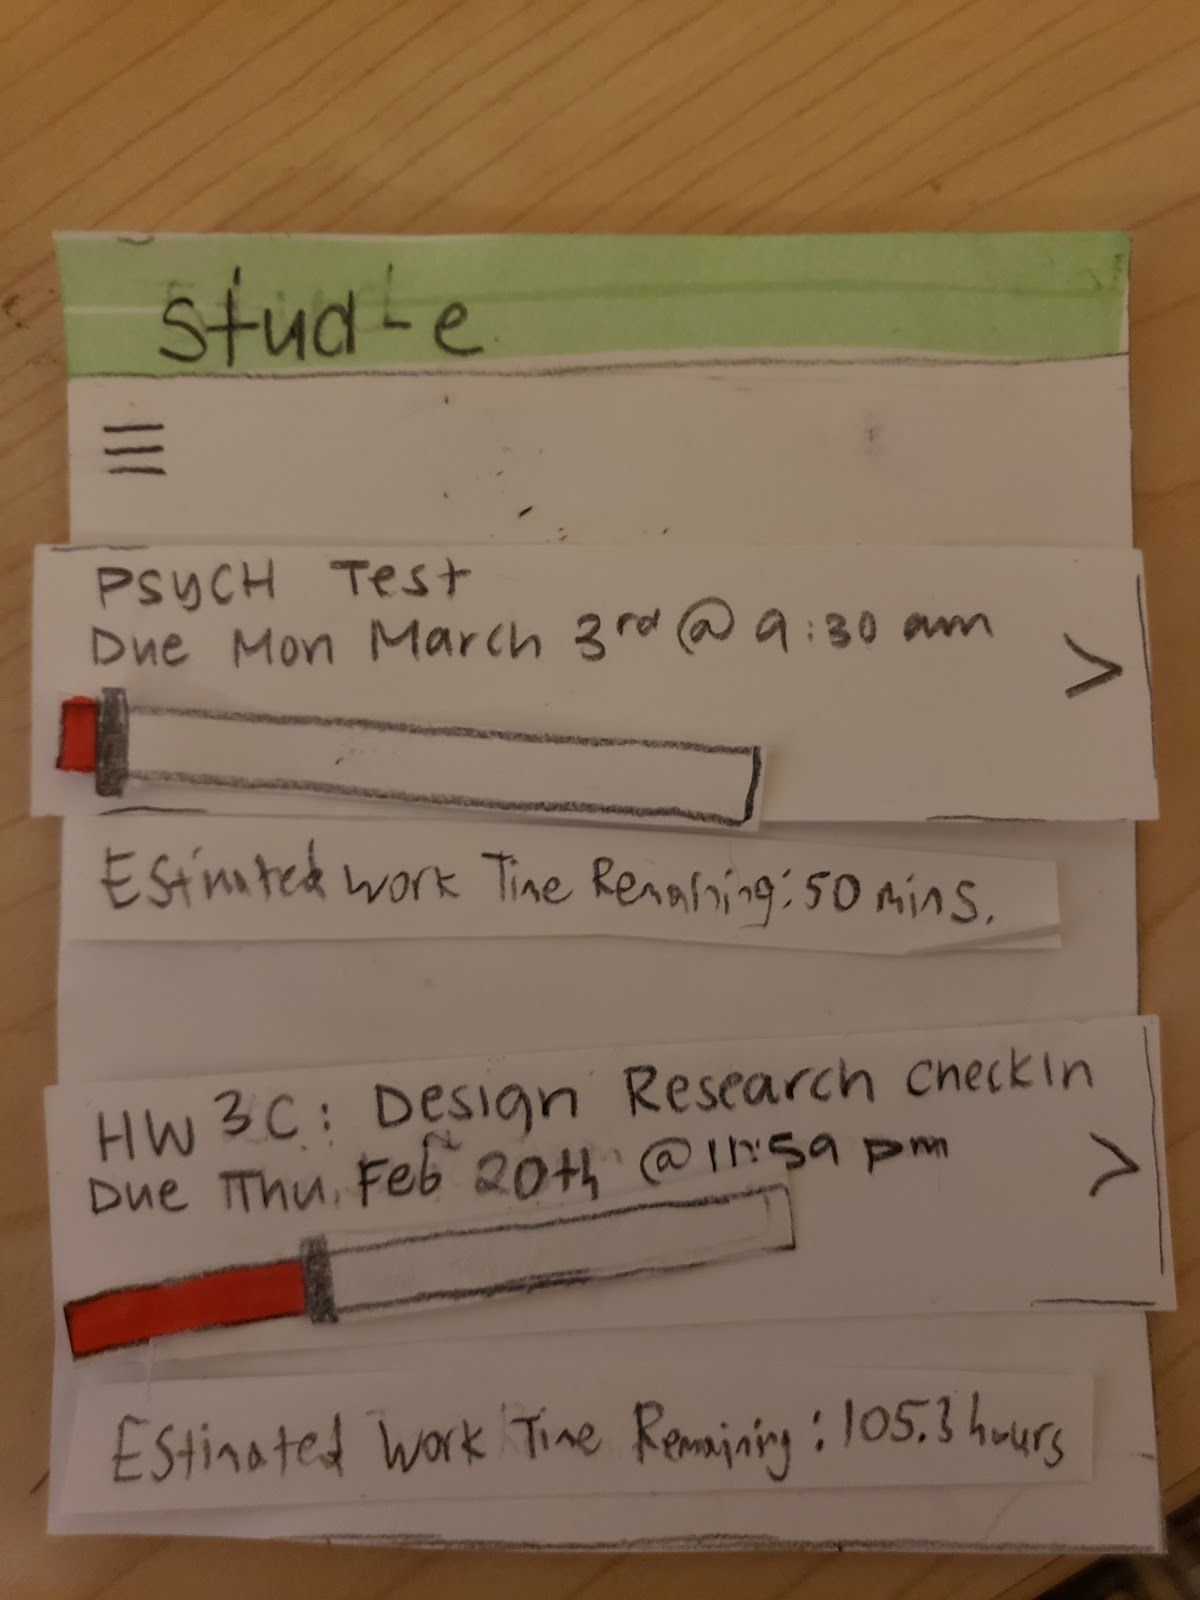 stud-e
PSYCH Test
Due Mon March 3rd @ 9:30 am
>
Estimated Work Time Remaining: 50 mins.
HW 3C: Design Research CheckIn
Due Thu. Feb 20th @ 11:59 pm
>
Estimated Work Time Remaining: 105.3 hours